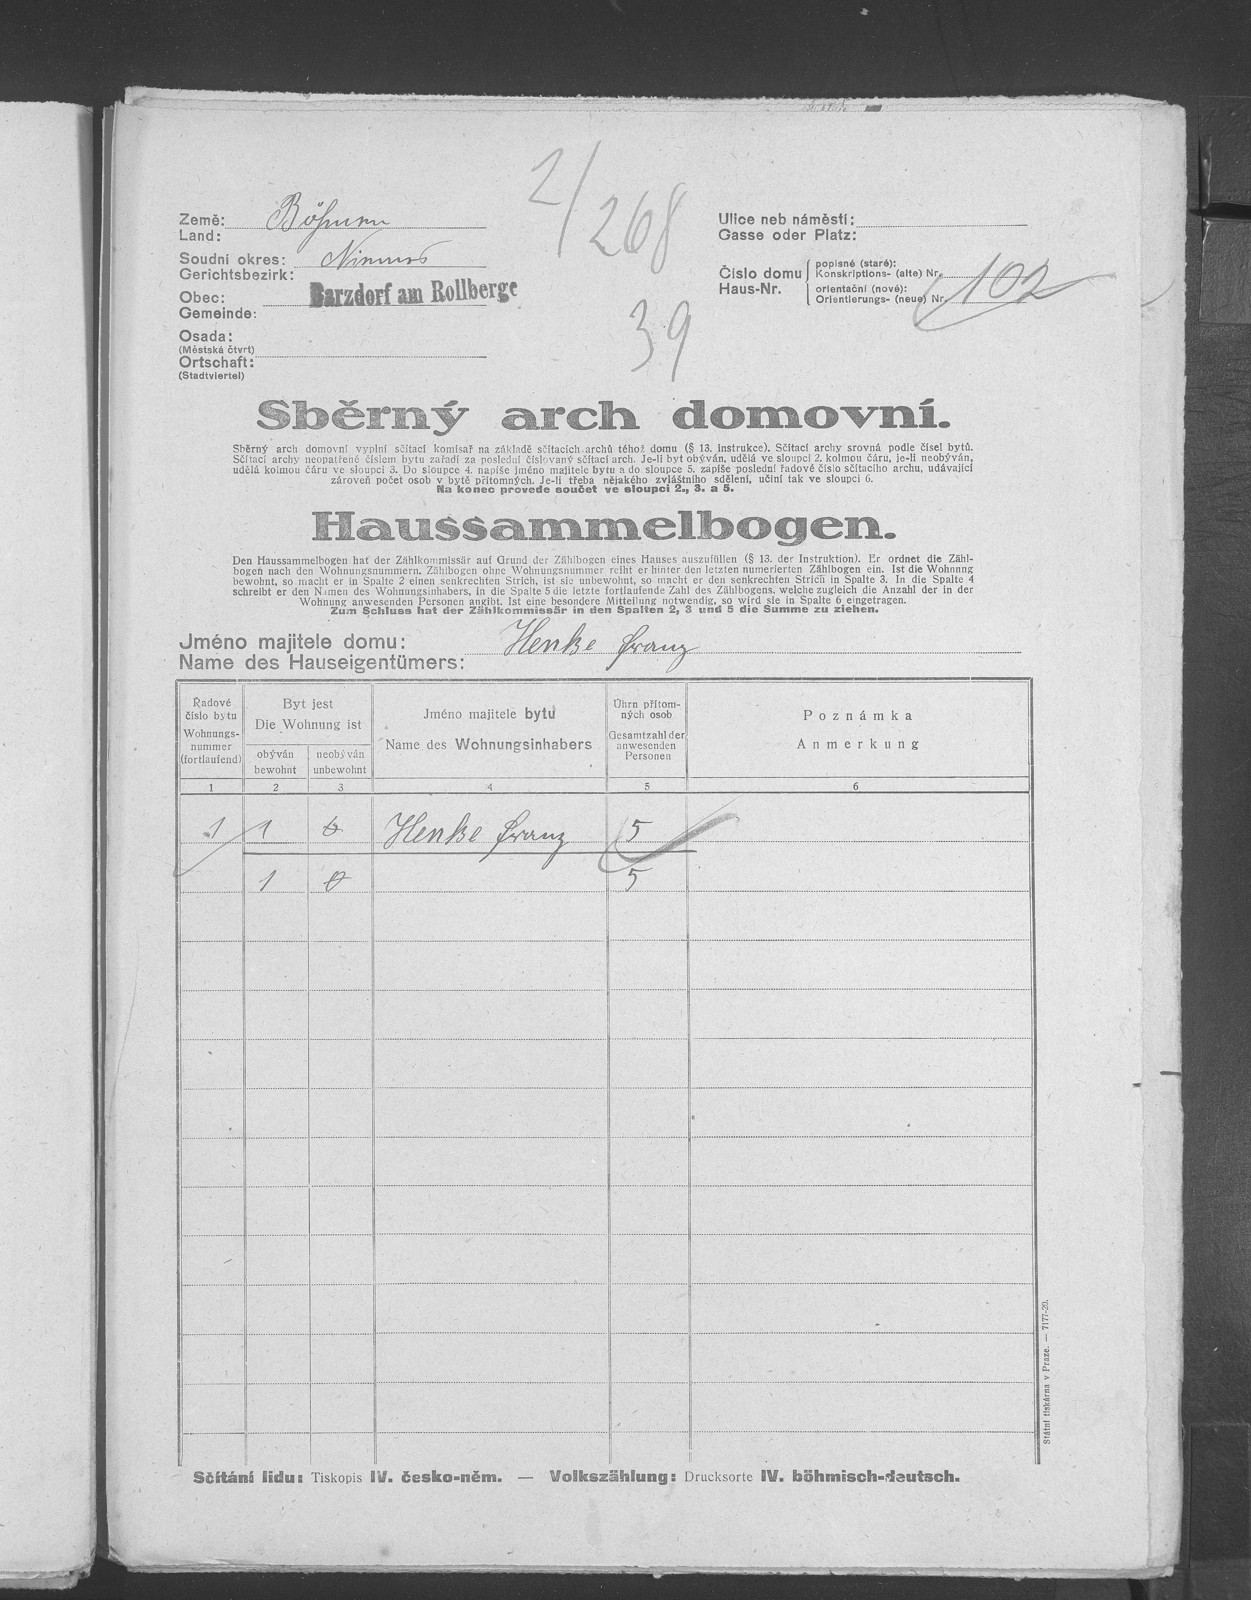 2/268
39
Země: Böhmen
Land:
Soudní okres: Niemes
Gerichtsbezirk:
Obec: Barzdorf am Rollberge
Gemeinde:
Osada:
(Městská čtvrt)
Ortschaft:
(Stadtviertel)
Ulice neb náměstí:
Gasse oder Platz:
Číslo domu popisné (staré):
Konskriptions- (alte) Nr.
Haus-Nr. orientační (nové):
Orientierungs- (neue) Nr. 102
Sběrný arch domovní.
Sběrný arch domovní vyplní sčítací komisař na základě sčítacích archů téhož domu (§ 13. instrukce). Sčítací archy srovná podle čísel bytů.
Sčítací archy neopatřené číslem bytu zařadí za poslední číslovaný sčítací arch. Je-li byt obýván, udělá ve sloupci 2. kolmou čáru, je-li neobýván,
udělá kolmou čáru ve sloupci 3. Do sloupce 4. napíše jméno majitele bytu a do sloupce 5. zapíše poslední řadové číslo sčítacího archu, udávající
zároveň počet osob v bytě přítomných. Je-li třeba nějakého zvláštního sdělení, učiní tak ve sloupci 6.
Na konec provede součet ve sloupci 2., 3. a 5.
Haussammelbogen.
Den Haussammelbogen hat der Zählkommissär auf Grund der Zählbogen eines Hauses auszufüllen (§ 13. der Instruktion). Er ordnet die Zähl-
bogen nach den Wohnungsnummern. Zählbogen ohne Wohnungsnummer reiht er hinter den letzten numerierten Zählbogen ein. Ist die Wohnnng
bewohnt, so macht er in Spalte 2 einen senkrechten Strich, ist sie unbewohnt, so macht er den senkrechten Strich in Spalte 3. In die Spalte 4
schreibt er den Namen des Wohnungsinhabers, in die Spalte 5 die letzte fortlaufende Zahl des Zählbogens, welche zugleich die Anzahl der in der
Wohnung anwesenden Personen angibt. Ist eine besondere Mitteilung notwendig, so wird sie in Spalte 6 eingetragen.
Zum Schluss hat der Zählkommissär in den Spalten 2, 3 und 5 die Summe zu ziehen.
Jméno majitele domu: Henke Franz
Name des Hauseigentümers:
Řadové číslo bytu
Wohnungs-nummer (fortlaufend)
Byt jest
Die Wohnung ist
obýván
bewohnt
neobýván
unbewohnt
Jméno majitele bytu
Name des Wohnungsinhabers
Úhrn přítom-ných osob
Gesamtzahl der anwesenden Personen
Poznámka
Anmerkung
1 2 3 4 5 6
1 1 0 Henke Franz 5
1 0 5
Státní tiskárna v Praze. — 7177-20.
Sčítání lidu: Tiskopis IV. česko-něm. — Volkszählung: Drucksorte IV. böhmisch-deutsch.